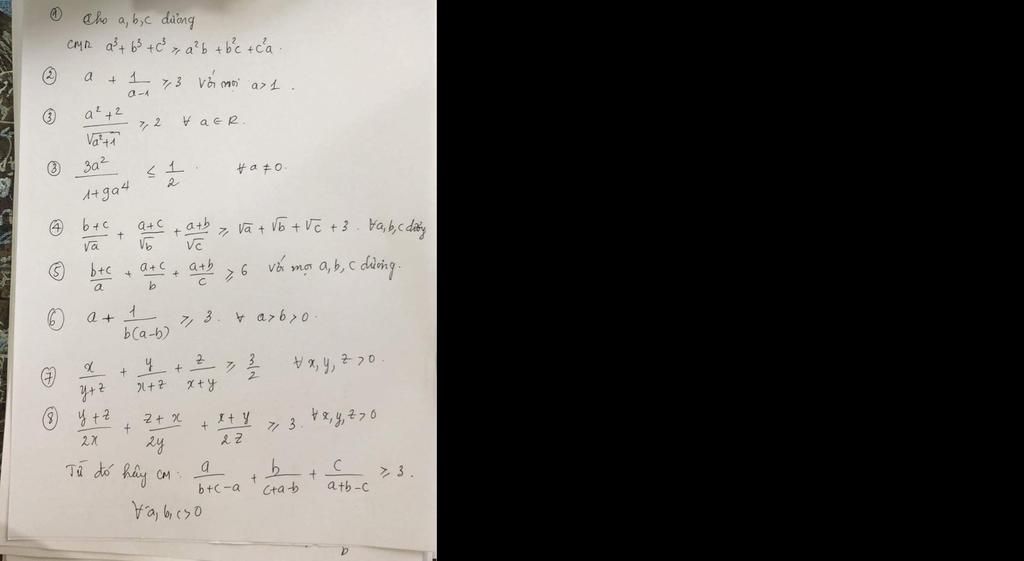 ① Cho a, b, c dương
CMR a³ + b³ + c³ ≥ a²b + b²c + c²a.
② a + 1/(a-1) ≥ 3 Với mọi a > 1.
③ (a² + 2)/√(a²+1) ≥ 2 ∀ a ∈ R.
③ 3a²/(1+9a⁴) ≤ 1/2. ∀ a ≠ 0.
④ (b+c)/√a + (a+c)/√b + (a+b)/√c ≥ √a + √b + √c + 3. ∀a,b,c dương
⑤ (b+c)/a + (a+c)/b + (a+b)/c ≥ 6 với mọi a, b, c dương.
⑥ a + 1/(b(a-b)) ≥ 3. ∀ a > b > 0.
⑦ x/(y+z) + y/(x+z) + z/(x+y) ≥ 3/2 ∀ x, y, z > 0.
⑧ (y+z)/2x + (z+x)/2y + (x+y)/2z ≥ 3. ∀ x, y, z > 0
Từ đó hãy CM: a/(b+c-a) + b/(c+a-b) + c/(a+b-c) ≥ 3.
∀ a, b, c > 0
b